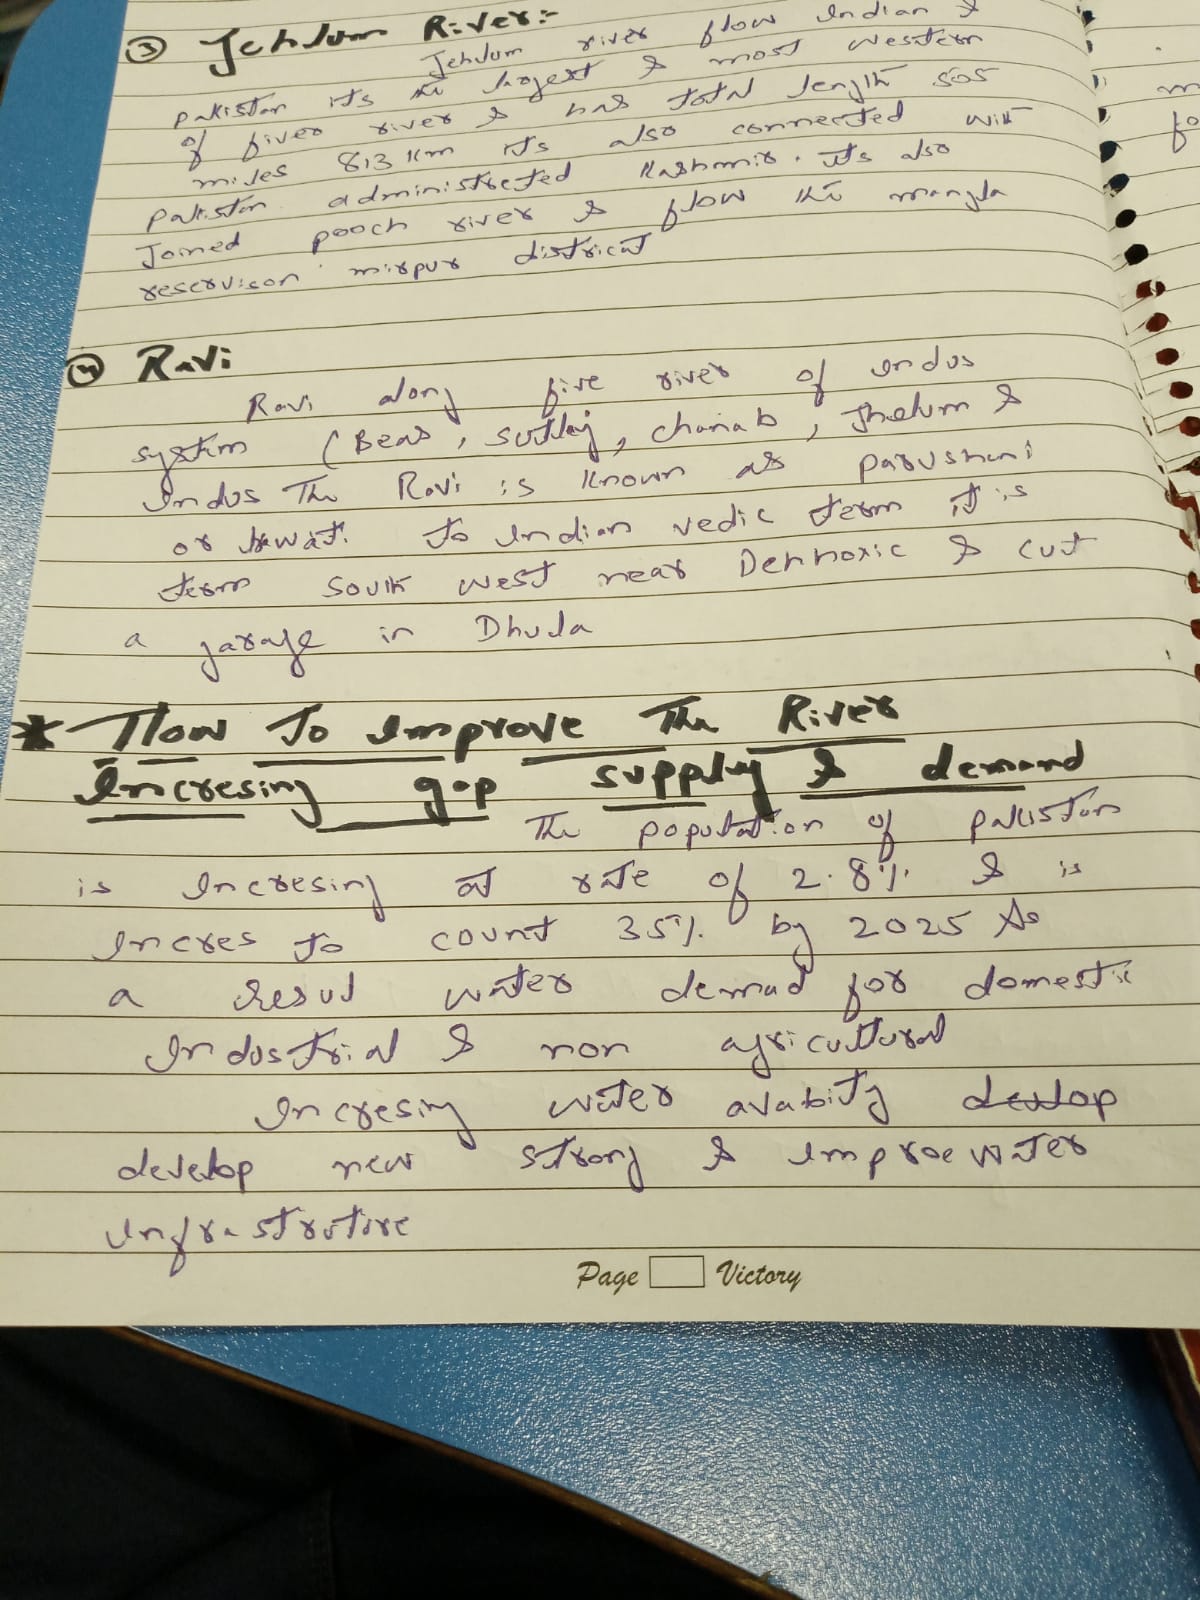 ③ Jehlum River:-
Jehlum river flow Indian &
pakistan its the largest & most western
of fiver river & has total length 505
miles 813 km its also connected with
pakistan administreted Kashmir. its also
Joined pooch river & flow the mangla
reservison mirpur districat
④ Ravi
Ravi along five river of indus
system (Beas, sutlej, chanab, Jhelum &
Indus The Ravi is known as parushani
or To Indian vedic term it is
term south west near & cut
a garage in Dhula
* How To Improve The River
Incresing gap supply & demand
The population of pakistan
is Incresing at rate of 2.8% & is
Incres to count 35% by 2025 As
a resut water demad for domestic
Industrial & non agricultural
Incresing water avabity
develop new strong & improe water
infrastrutore
m
fo
Page Victory